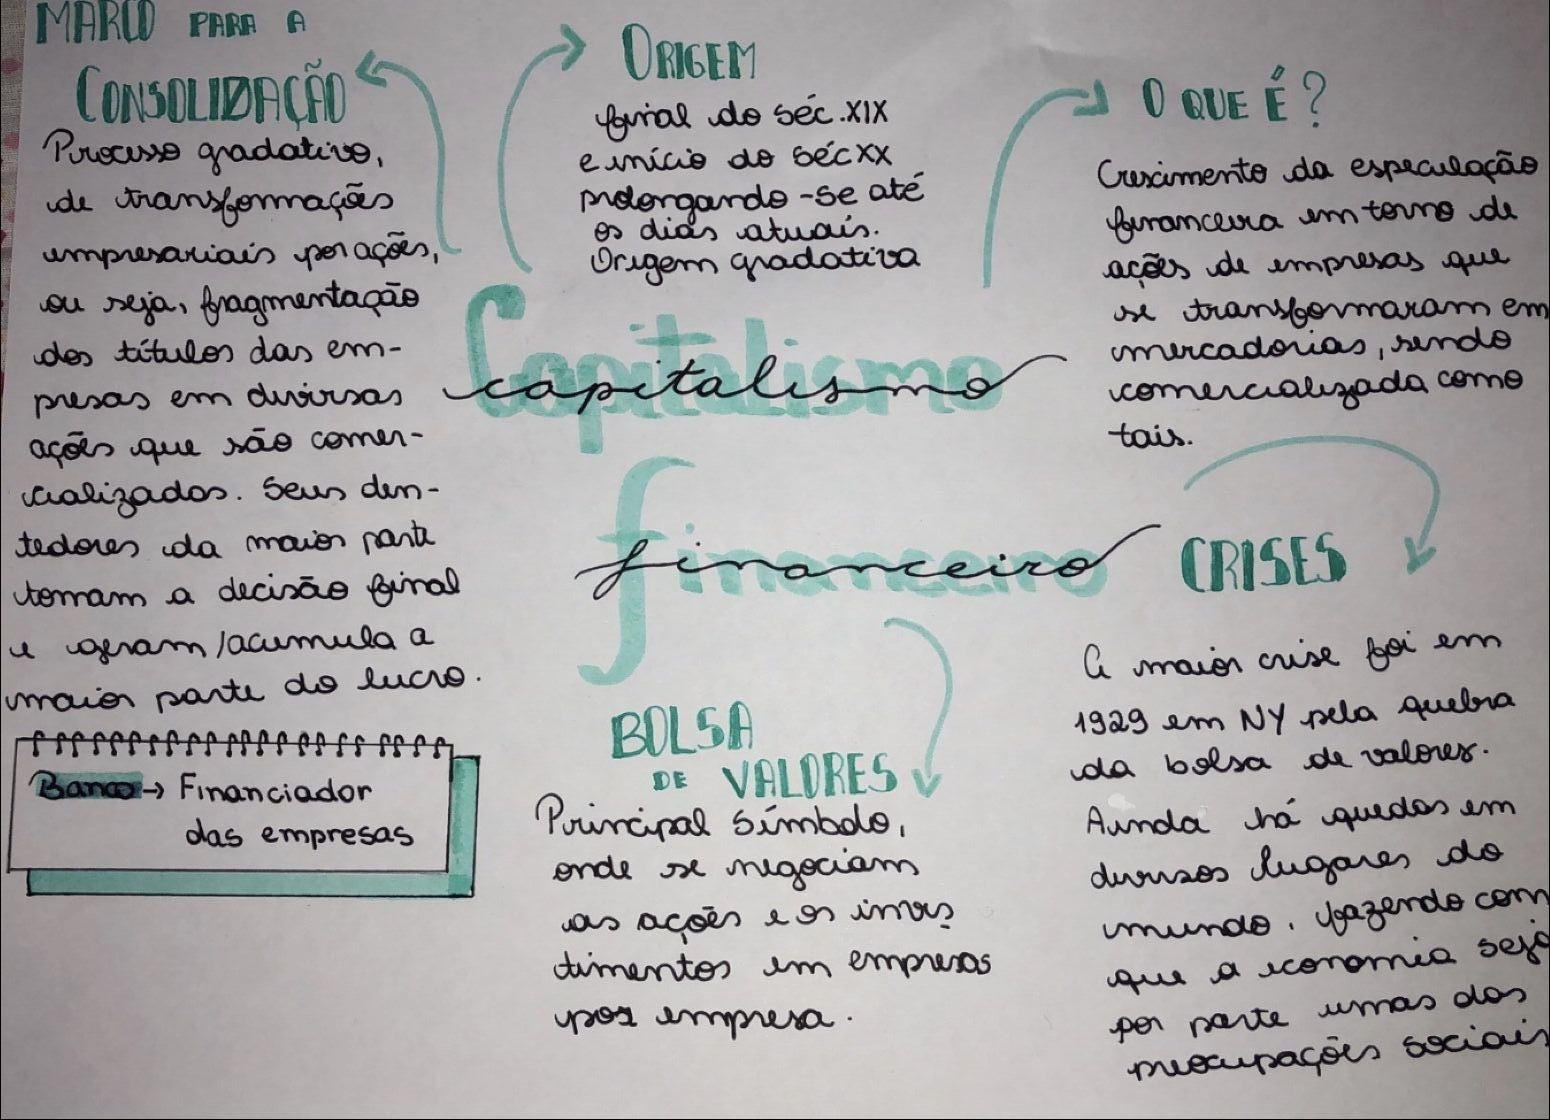 MARCO PARA A
CONSOLIDAÇÃO
Processo gradativo,
de transformações
empresariais por ações,
ou seja, fragmentação
dos títulos das em-
presas em diversas
ações que são comer-
cializados. Seus den-
tedores da maior parte
tomam a decisão final
e geram/acumula a
maior parte do lucro.
Banco → Financiador
das empresas
ORIGEM
final do séc.XIX
e início do séc XX
prolongando-se até
os dias atuais.
Origem gradativa
Capitalismo
capitalismo
financeiro
financeiro
BOLSA
DE VALORES
Principal símbolo,
onde se negociam
as ações e os inves
timentos em empresas
por empresa.
O QUE É?
Crescimento da especulação
financeira em torno de
ações de empresas que
se transformaram em
mercadorias, sendo
comercializada como
tais.
CRISES
A maior crise foi em
1929 em NY pela quebra
da bolsa de valores.
Ainda há quedas em
diversos lugares do
mundo, fazendo com
que a economia seja
por parte umas das
preocupações sociais